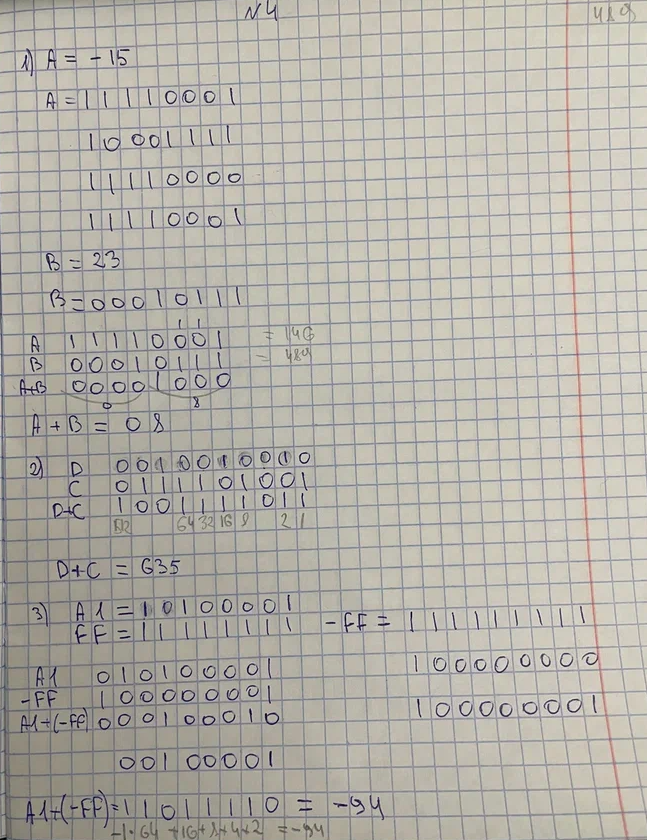 №4
489
1) A = -15
A = 11110001
10001111
11110000
11110001
B = 23
B = 00010111
1 1
A 11110001 = 146
B 00010111 = 489
A+B 00001000
0 8
A + B = 08
2) D 0010010010
C 0111101001
D+C 1001111011
512 64 32 16 8 2 1
D+C = 635
3) A1 = 10100001
FF = 11111111 -FF = 111111111
A1 010100001 100000000
-FF 100000001
A1+(-FF) 000100010 100000001
00100001
A1+(-FF) = 11011110 = -94
-1·64 +16+8+4+2 = -94